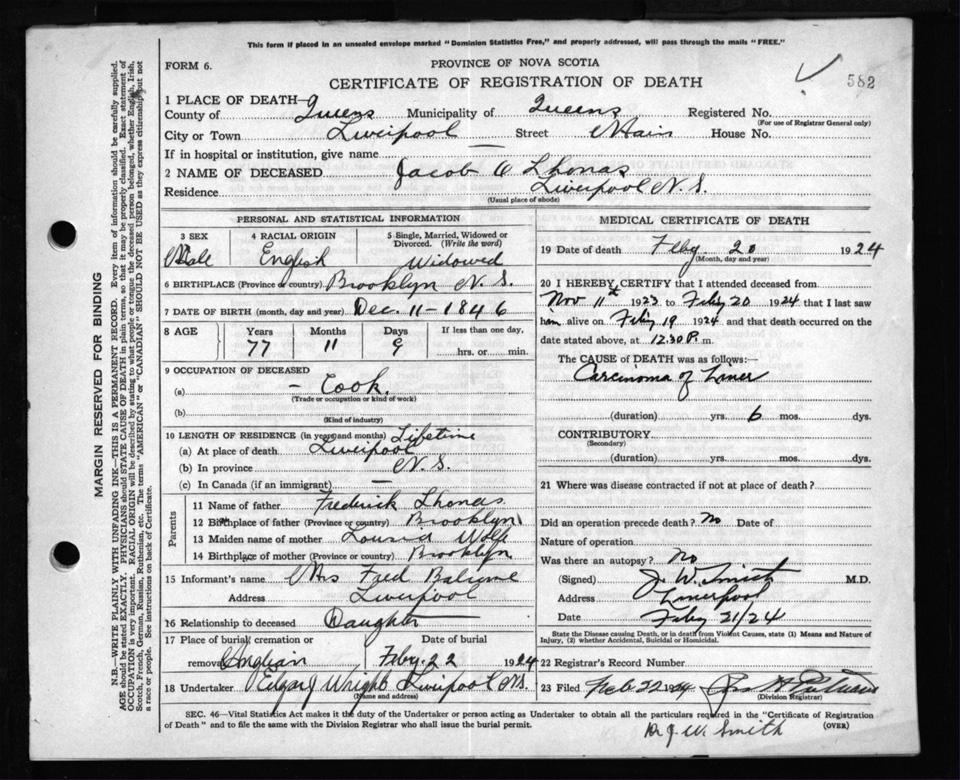 This form if placed in an unsealed envelope marked "Dominion Statistics Free," and properly addressed, will pass through the mails "FREE."
FORM 6.
PROVINCE OF NOVA SCOTIA
CERTIFICATE OF REGISTRATION OF DEATH
582
1 PLACE OF DEATH—
County of Queens Municipality of Queens Registered No.
(For use of Registrar General only)
City or Town Liverpool Street Main House No.
If in hospital or institution, give name —
2 NAME OF DECEASED Jacob O Thomas
Residence Liverpool N.S.
(Usual place of abode)
PERSONAL AND STATISTICAL INFORMATION
3 SEX 4 RACIAL ORIGIN 5 Single, Married, Widowed or Divorced. (Write the word)
Male English Widowed
6 BIRTHPLACE (Province or country) Brooklyn N.S.
7 DATE OF BIRTH (month, day and year) Dec. 11 - 1846
8 AGE Years Months Days If less than one day,
77 11 9 hrs. or min.
9 OCCUPATION OF DECEASED
(a) – Cook.
(Trade or occupation or kind of work)
(b)
(Kind of industry)
10 LENGTH OF RESIDENCE (in years and months) Lifetime
(a) At place of death Liverpool
(b) In province N.S.
(c) In Canada (if an immigrant) —
Parents
11 Name of father Frederick Thomas
12 Birthplace of father (Province or country) Brooklyn
13 Maiden name of mother Wolfe
14 Birthplace of mother (Province or country) Brooklyn
15 Informant's name Mrs Fred
Address Liverpool
16 Relationship to deceased Daughter
17 Place of burial, cremation or removal Anglican
Date of burial Feby. 22 1924
18 Undertaker Edgar J Wright Liverpool N.S.
(Name and address)
MEDICAL CERTIFICATE OF DEATH
19 Date of death Feby 20 1924
(Month, day and year)
20 I HEREBY CERTIFY that I attended deceased from
Nov 11th 1923 to Feby 20 1924 that I last saw
him alive on Feby 19 1924 and that death occurred on the
date stated above, at 12.30 P. m.
The CAUSE of DEATH was as follows:—
Carcinoma of Liver
(duration) yrs. 6 mos. dys.
CONTRIBUTORY
(Secondary)
(duration) yrs. mos. dys.
21 Where was disease contracted if not at place of death?
Did an operation precede death? No Date of
Nature of operation
Was there an autopsy? No
(Signed) J. W. Smith M.D.
Address Liverpool
Date Feby 21/24
State the Disease causing Death, or in death from Violent Causes, state (1) Means and Nature of
Injury, (2) whether Accidental, Suicidal or Homicidal.
22 Registrar's Record Number
23 Filed Feb 22 1924
(Division Registrar)
SEC. 46—Vital Statistics Act makes it the duty of the Undertaker or person acting as Undertaker to obtain all the particulars required in the "Certificate of Registration
of Death" and to file the same with the Division Registrar who shall issue the burial permit.
(OVER)
Dr J. W. Smith
MARGIN RESERVED FOR BINDING
N.B.—WRITE PLAINLY WITH UNFADING INK—THIS IS A PERMANENT RECORD. Every item of information should be carefully supplied.
AGE should be stated EXACTLY. PHYSICIANS should STATE CAUSE OF DEATH in plain terms, so that it may be properly classified. Exact statement of
OCCUPATION is very important. RACIAL ORIGIN will be described by stating to what people or tongue the deceased person belonged, whether English, Irish,
Scotch, French, German, Russian, Ruthenian, etc. The terms "AMERICAN" or "CANADIAN" SHOULD NOT BE USED as they express citizenship but not
a race or people. See instructions on back of Certificate.